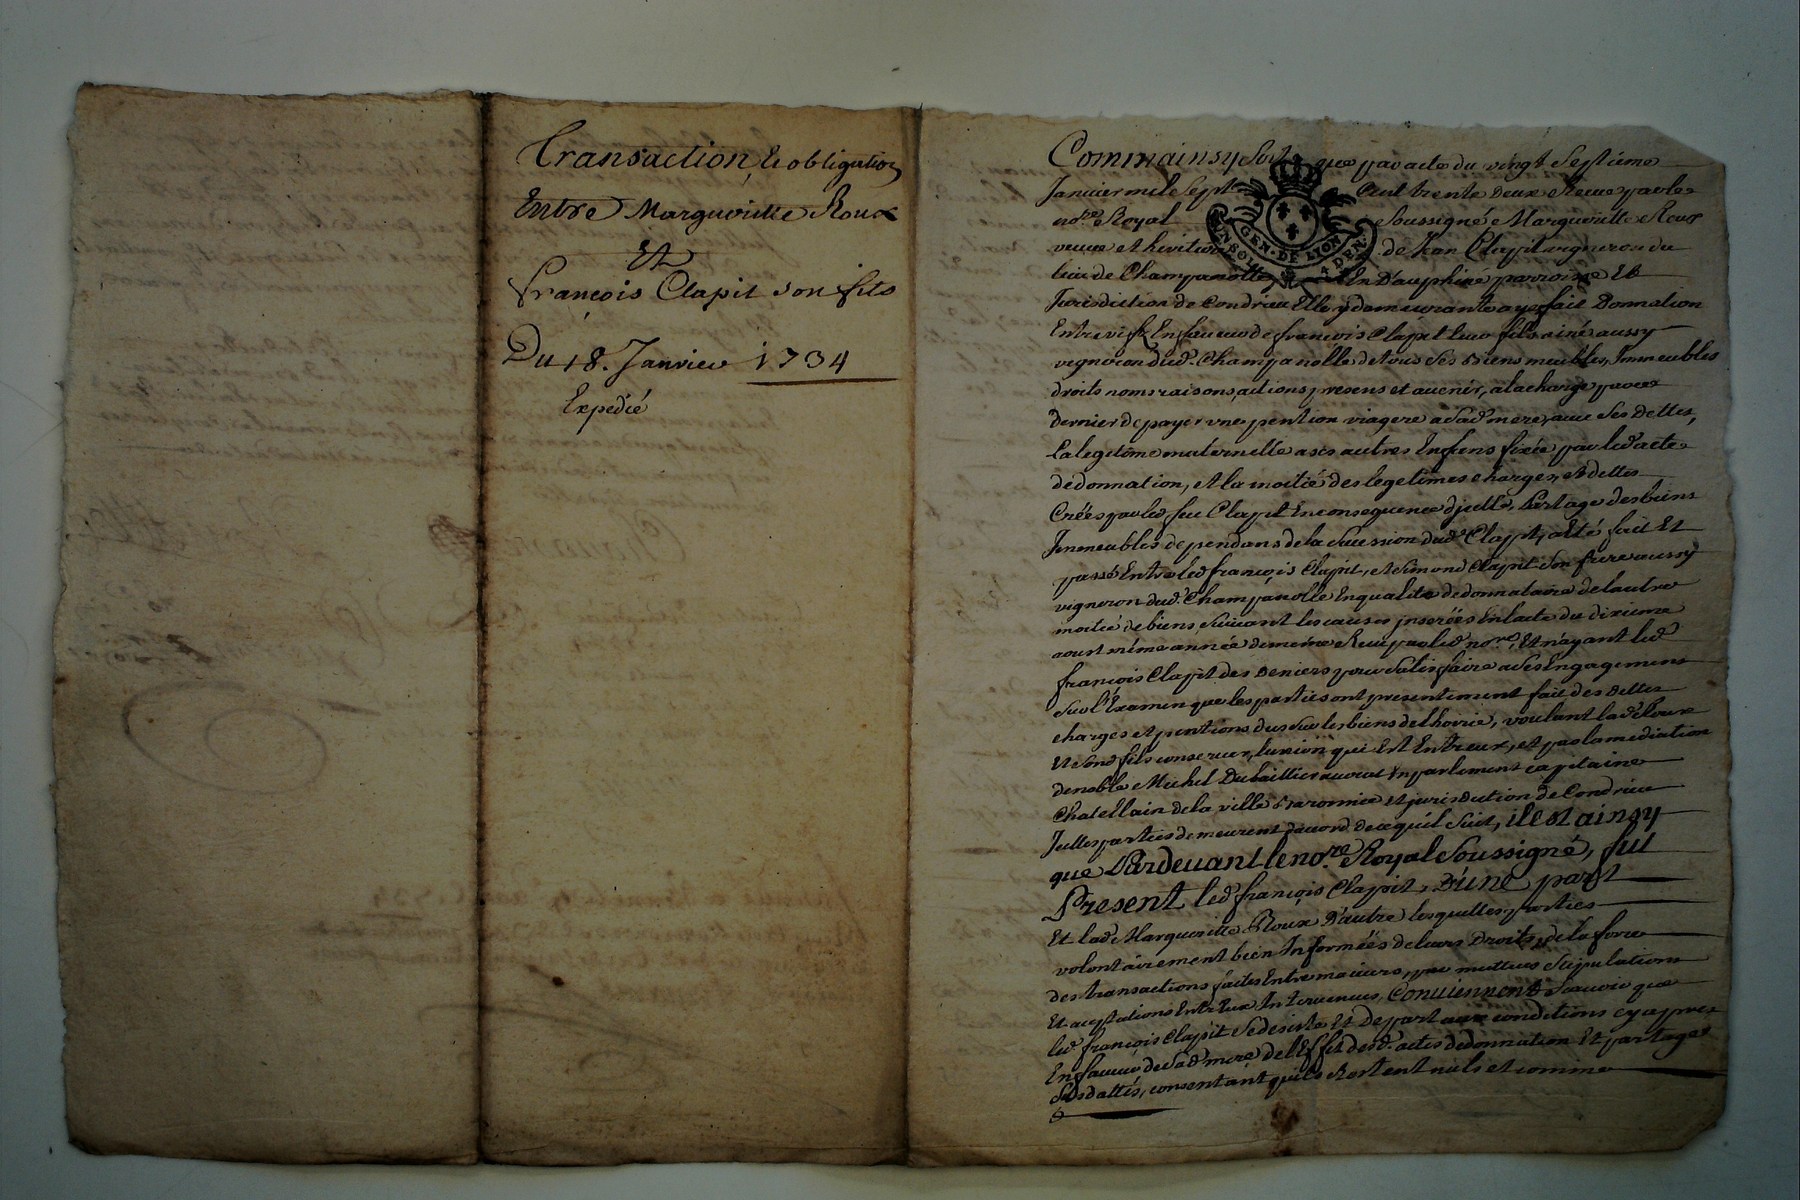 Transaction, et obligation
Entre Margueritte Roux
Et
françois Clapit son fils
Du 18. Janvier 1734
Expedié
Comme ainsy soit que par acte du vingt Septième
Janvier mil sept Cent trente deux Receu par le
no.re Royal Soussigné, Margueritte Roux
veuve et heritiere de Jean Clapit vigneron du
lieu de Champanolle En Dauphiné parroisse Et
Jurisdiction de Condrieu Elle y demeurante aye fait Donnation
Entre vifs En faveur de françois Clapit leur fils ainé aussy
vigneron dud. Champanolle de tous ses Biens meubles, Immeubles
droits noms raisons, actions presens et avenir, a la charge par ce
dernier de payer une pention viagere a sad. mere, avec ses Dettes,
La legitime maternelle a ses autres Enfens fixée par led. acte
de donnation, et la moitié des legetimes charges, et dettes
Créés par led. feu Clapit En consequence d'jcelle, Partage des biens
Immeubles dependans de la Sucession dud. Clapit, a été fait Et
passé Entre led. françois Clapit, et Simond Clapit son frere aussy
vigneron dud. Champanolle En qualité de donnataire de lautre
moitié de biens, suivant les causes jnserées En lacte du dixieme
aoust même année de même Receu par led. no.re, Et n'ayant led.
françois Clapit des Deniers pour Satisfaire a ses Engagements
Sur l'Examen que les parties ont presentement fait des Dettes
charges et pentions dus sur les biens de lhoirie, voulant lad. Roux
Et Sond. fils conserver, lunion qui Est Entreux, et par la mediation
de noble Michel Dubaillier avocat En parlement capitaine
Chatellain de la ville Baronnie et jurisdiction de Condrieu
Jcelles parties demeurent d'acord de ce qu'il Suit, il est ainsy
que Pardevant le no.re Royal Soussigné, fut
Present led. françois Clapit, D'une part
Et lad. Margueritte Roux D'autre lesquelles parties
volontairement bien Informées de leurs Droits, de la force
des transactions faites Entre majeurs, par mutues Stipulations
Et aceptations Entreux Intervenues, Conviennent Scavoir que
led. françois Clapit Se desiste Et Depart aux conditions cy apres
En faveur de Sad. mere de l'Effet desd. actes de donnation Et partage
Susdattés, consentant qu'ils Restent nuls et comme